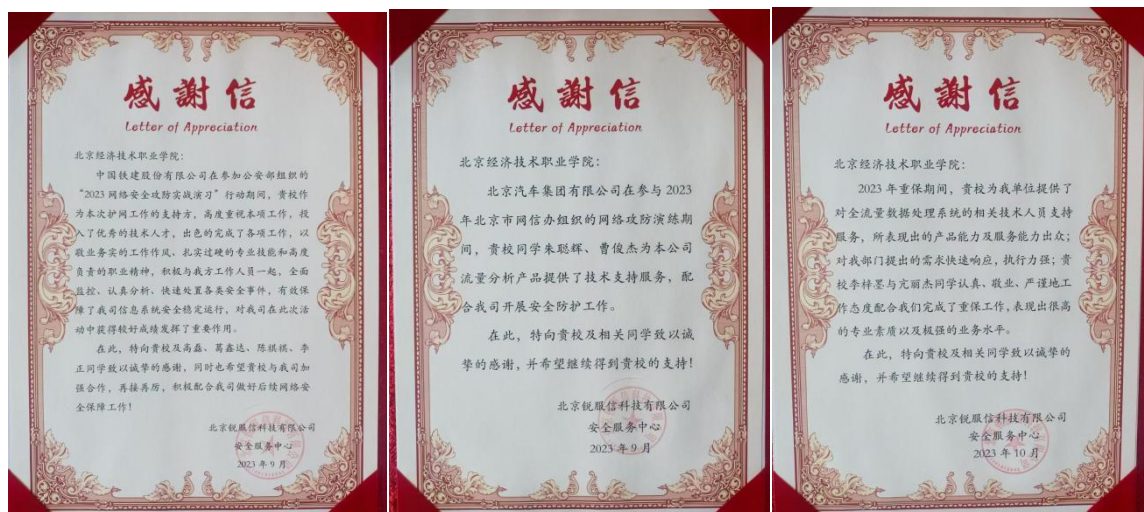 感謝信
Letter of Appreciation
北京经济技术职业学院：
中国铁建股份有限公司在参加公安部组织的
“2023 网络安全攻防实战演习”行动期间，贵校作
为本次护网工作的支持方，高度重视本项工作，投
入了优秀的技术人才，出色的完成了各项工作，以
敬业务实的工作作风、扎实过硬的专业技能和高度
负责的职业精神，积极与我方工作人员一起，全面
监控、认真分析、快速处置各类安全事件，有效保
障了我司信息系统安全稳定运行，对我司在此次活
动中获得较好成绩发挥了重要作用。
在此，特向贵校及高磊、葛鑫达、陈祺祺、李
正同学致以诚挚的感谢，同时也希望贵校与我司加
强合作，再接再厉，积极配合我司做好后续网络安
全保障工作！
北京锐服信科技有限公司
安全服务中心
2023 年 9 月
感謝信
Letter of Appreciation
北京经济技术职业学院：
北京汽车集团有限公司在参与 2023
年北京市网信办组织的网络攻防演练期
间，贵校同学朱聪辉、曹俊杰为本公司
流量分析产品提供了技术支持服务，配
合我司开展安全防护工作。
在此，特向贵校及相关同学致以诚
挚的感谢，并希望继续得到贵校的支持！
北京锐服信科技有限公司
安全服务中心
2023 年 9 月
感謝信
Letter of Appreciation
北京经济技术职业学院：
2023 年重保期间，贵校为我单位提供了
对全流量数据处理系统的相关技术人员支持
服务，所表现出的产品能力及服务能力出众；
对我部门提出的需求快速响应，执行力强；贵
校李梓墨与亢丽杰同学认真、敬业、严谨地工
作态度配合我们完成了重保工作，表现出很高
的专业素质以及极强的业务水平。
在此，特向贵校及相关同学致以诚挚的
感谢，并希望继续得到贵校的支持！
北京锐服信科技有限公司
安全服务中心
2023 年 10 月